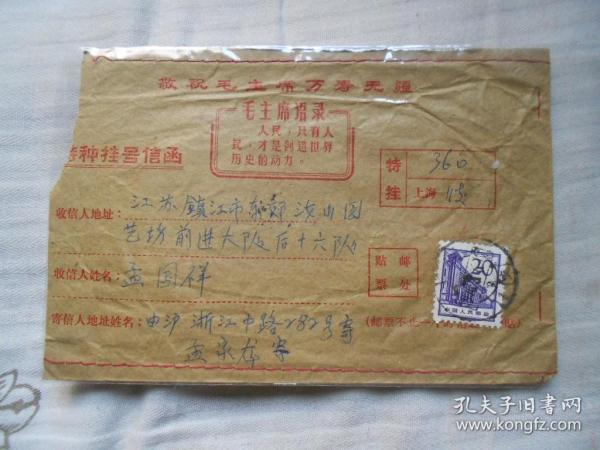 敬祝毛主席万寿无疆
毛主席语录
人民，只有人
民，才是创造世界
历史的动力。
特种挂号信函
特挂
360
上海
收信人地址：江苏镇江市东郊汝山园
艺坊前进大队后十六队
贴邮
票处
收信人姓名：孟国祥
20
中国人民邮政
寄信人地址姓名：由沪浙江中路282号寄
(邮票不止一
贴)
孟
寄
孔夫子旧书网
www.kongfz.com